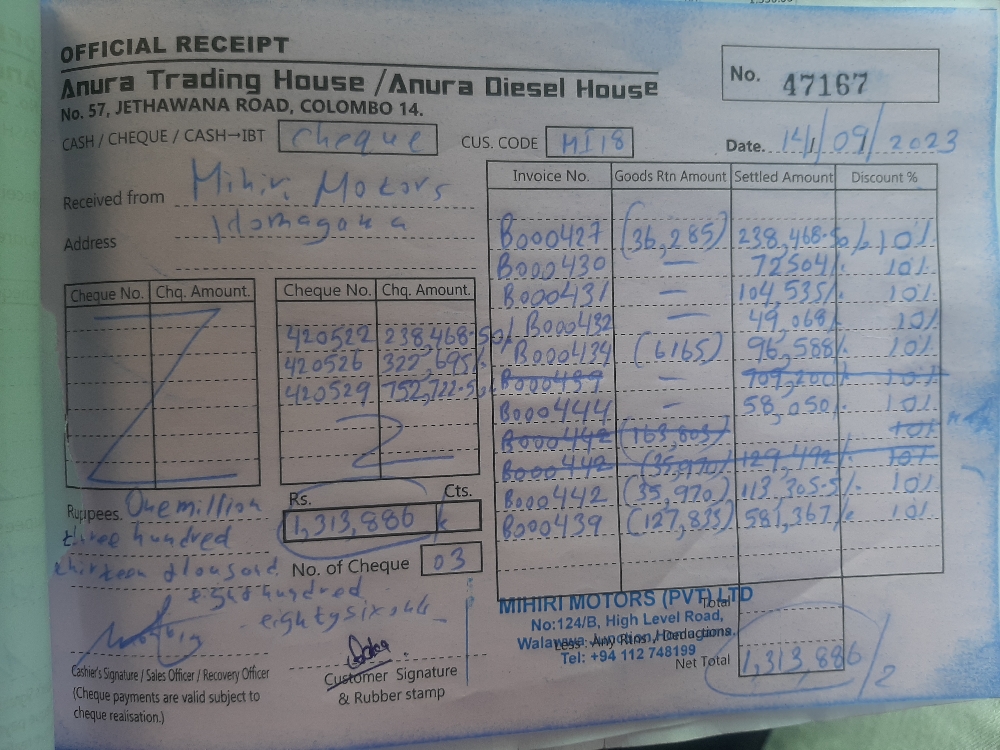 OFFICIAL RECEIPT
Anura Trading House / Anura Diesel House
No. 57, JETHAWANA ROAD, COLOMBO 14.
No. 47167
CASH / CHEQUE / CASH→IBT Cheque CUS. CODE MI18 Date. 14/09/2023
Received from Mihiri Motors
Address
Invoice No. Goods Rtn Amount Settled Amount Discount %
B000427 (36,285) 238,468-50/. 10%
B000430 — 72504/. 10%
B000431 — 104,535/. 10%
B000432 — 49,068/. 10%
B000434 (6165) 96,588/. 10%
B000439 — 10%
B000444 — 58,050/. 10%
B000442 (163,803) 10%
B000442 (35,970) 129,492/. 10%
B000442 (35,970) 113,305-5/. 10%
B000439 (127,835) 581,367/. 10%
Cheque No. Chq. Amount. Cheque No. Chq. Amount.
420522 238,468-50/.
420526 322,695/.
420529 752,722-50
Rs. Cts.
1,313,886
No. of Cheque 03
Rupees. One million
three hundred
thirteen thousand
eight hundred
eighty six
Total
Less : Any Rtns / Deductions.
Net Total 1,313,886/2
MIHIRI MOTORS (PVT) LTD
No:124/B, High Level Road,
Walawwa Junction, Homagama.
Tel: +94 112 748199
Cashier's Signature / Sales Officer / Recovery Officer
(Cheque payments are valid subject to
cheque realisation.)
Customer Signature
& Rubber stamp